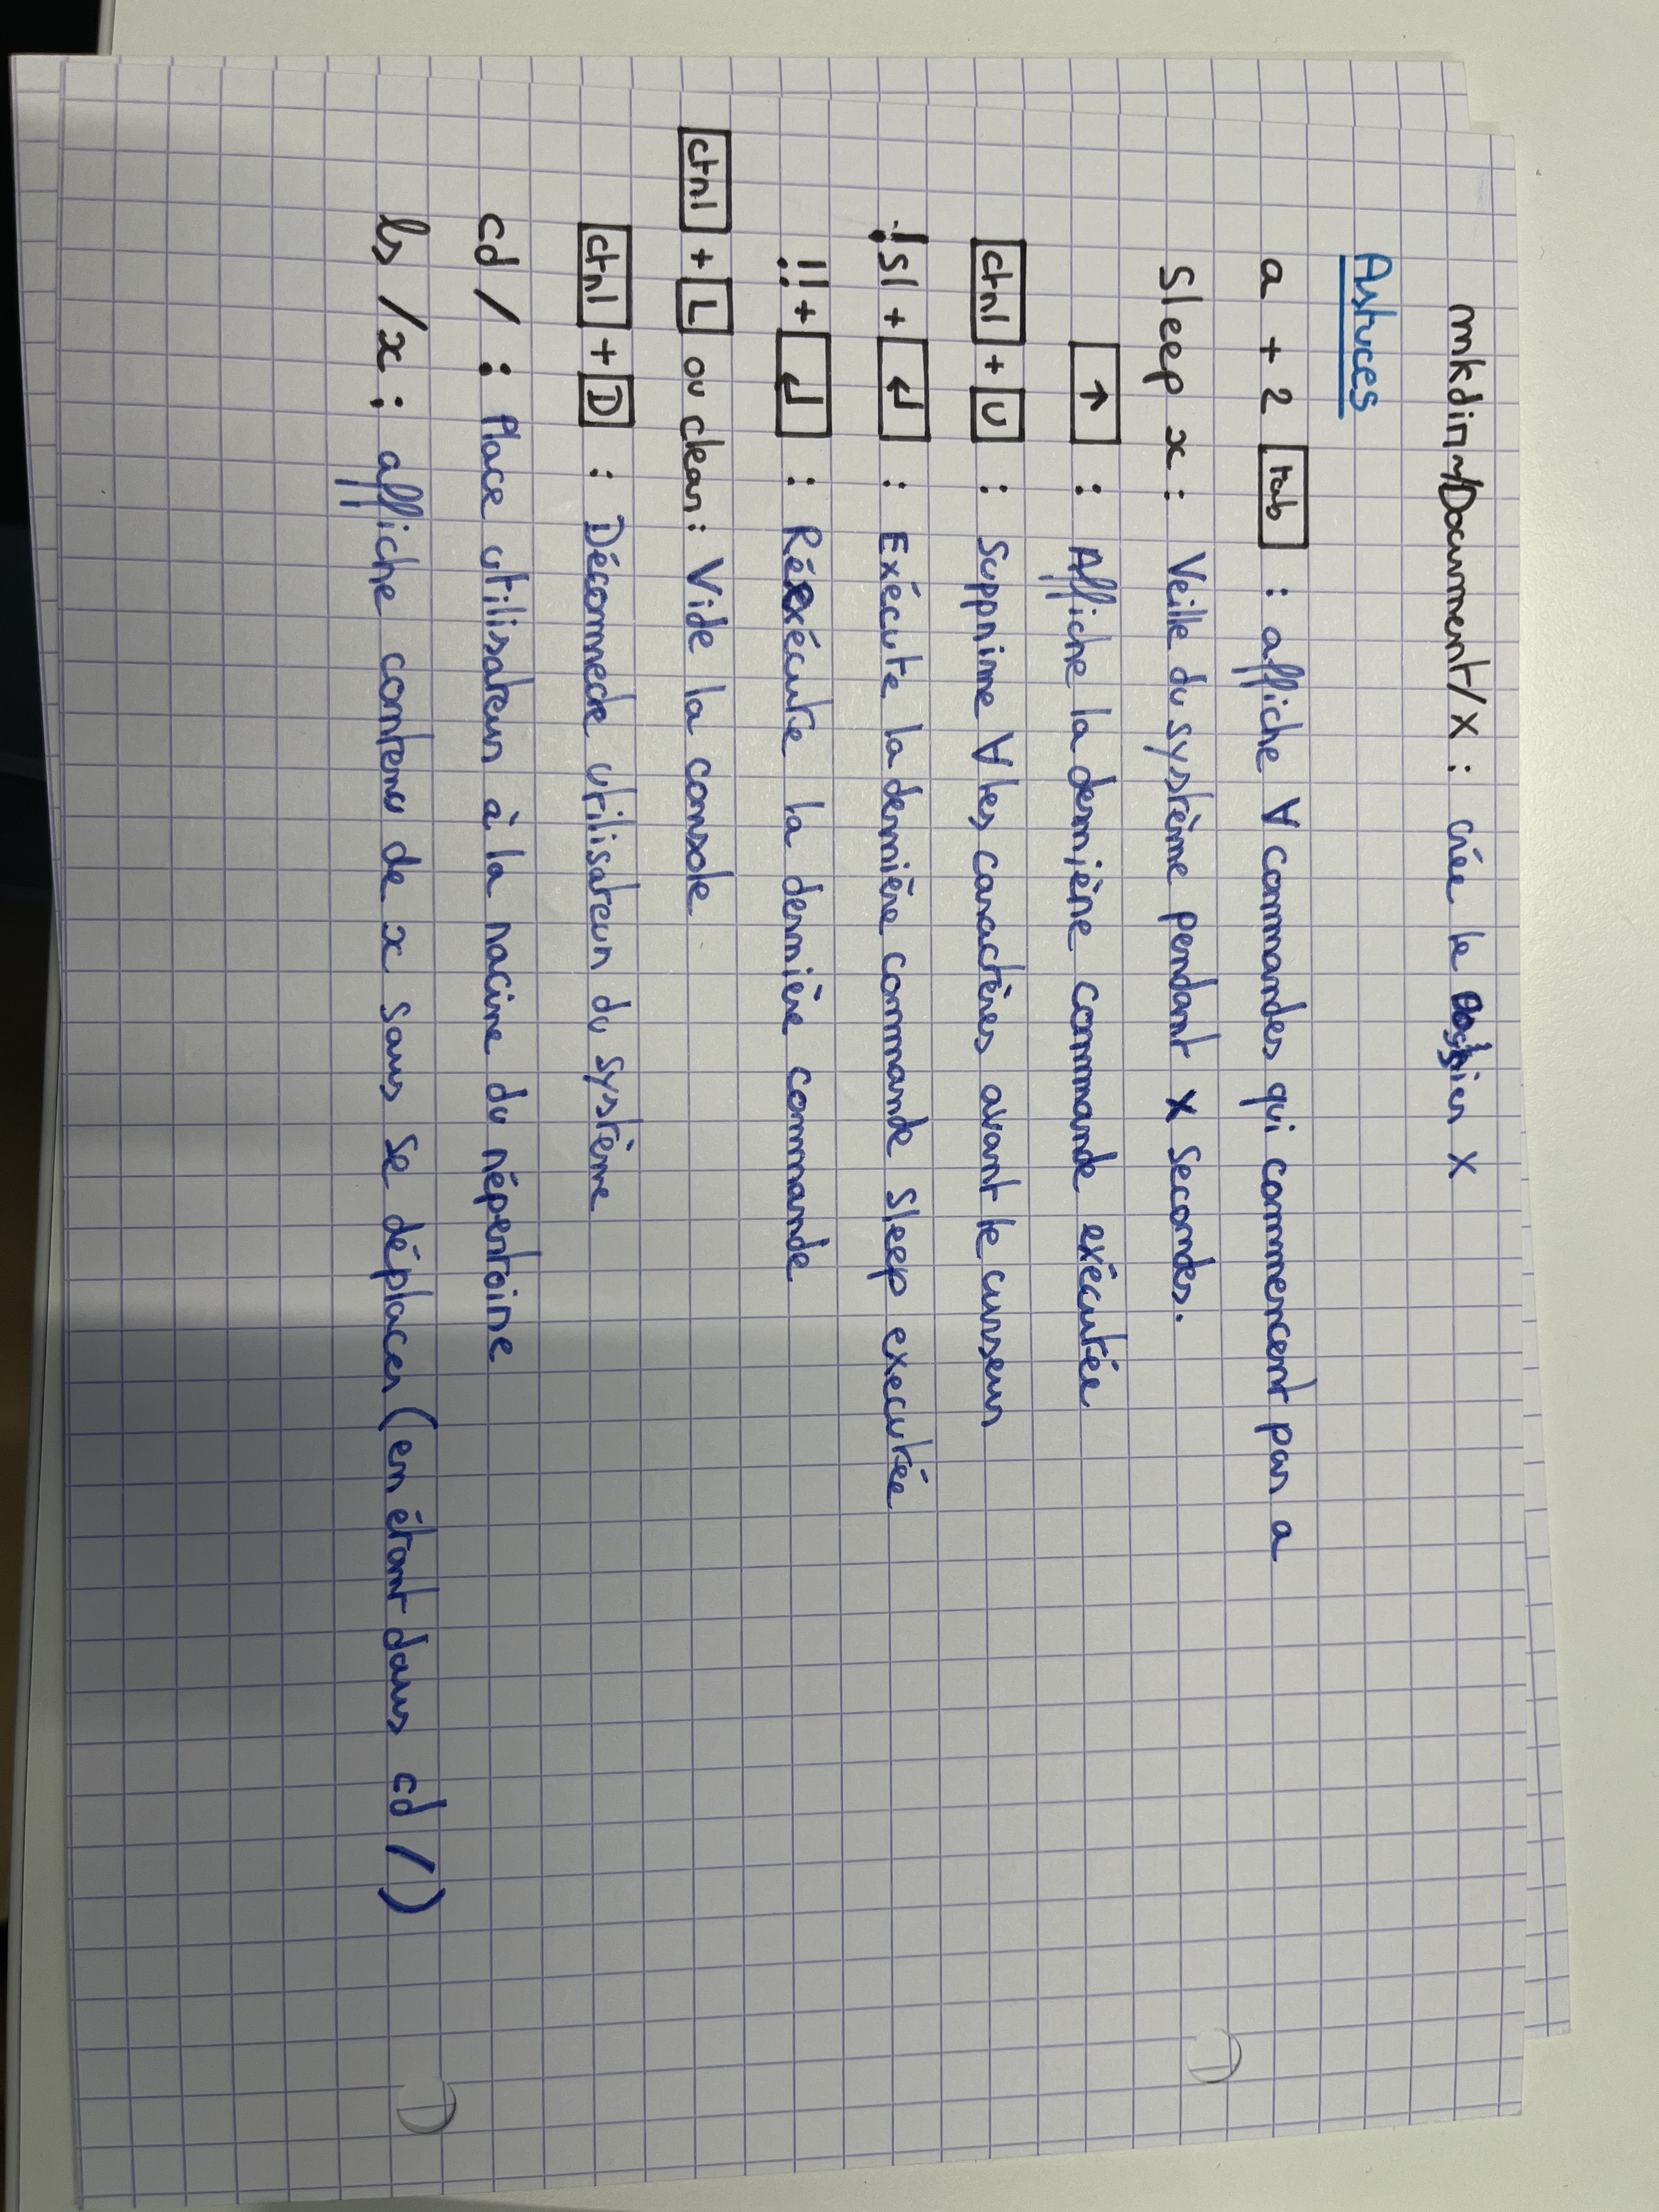 mkdir ~/Document/X : crée le dossier X
Astuces
a + 2 tab : affiche ∀ commandes qui commencent par a
Sleep x : Veille du système pendant X secondes.
↑ : Affiche la dernière commande exécutée
ctrl + U : Supprime ∀ les caractères avant le curseur
!sl + ↵ : Exécute la dernière commande sleep executée
!! + ↵ : Réexécute la dernière commande
ctrl + L ou clear : Vide la console
ctrl + D : Déconnecte utilisateur du système
cd / : Place utilisateur à la racine du répertoire
ls /x : affiche contenu de x sans se déplacer (en étant dans cd /)